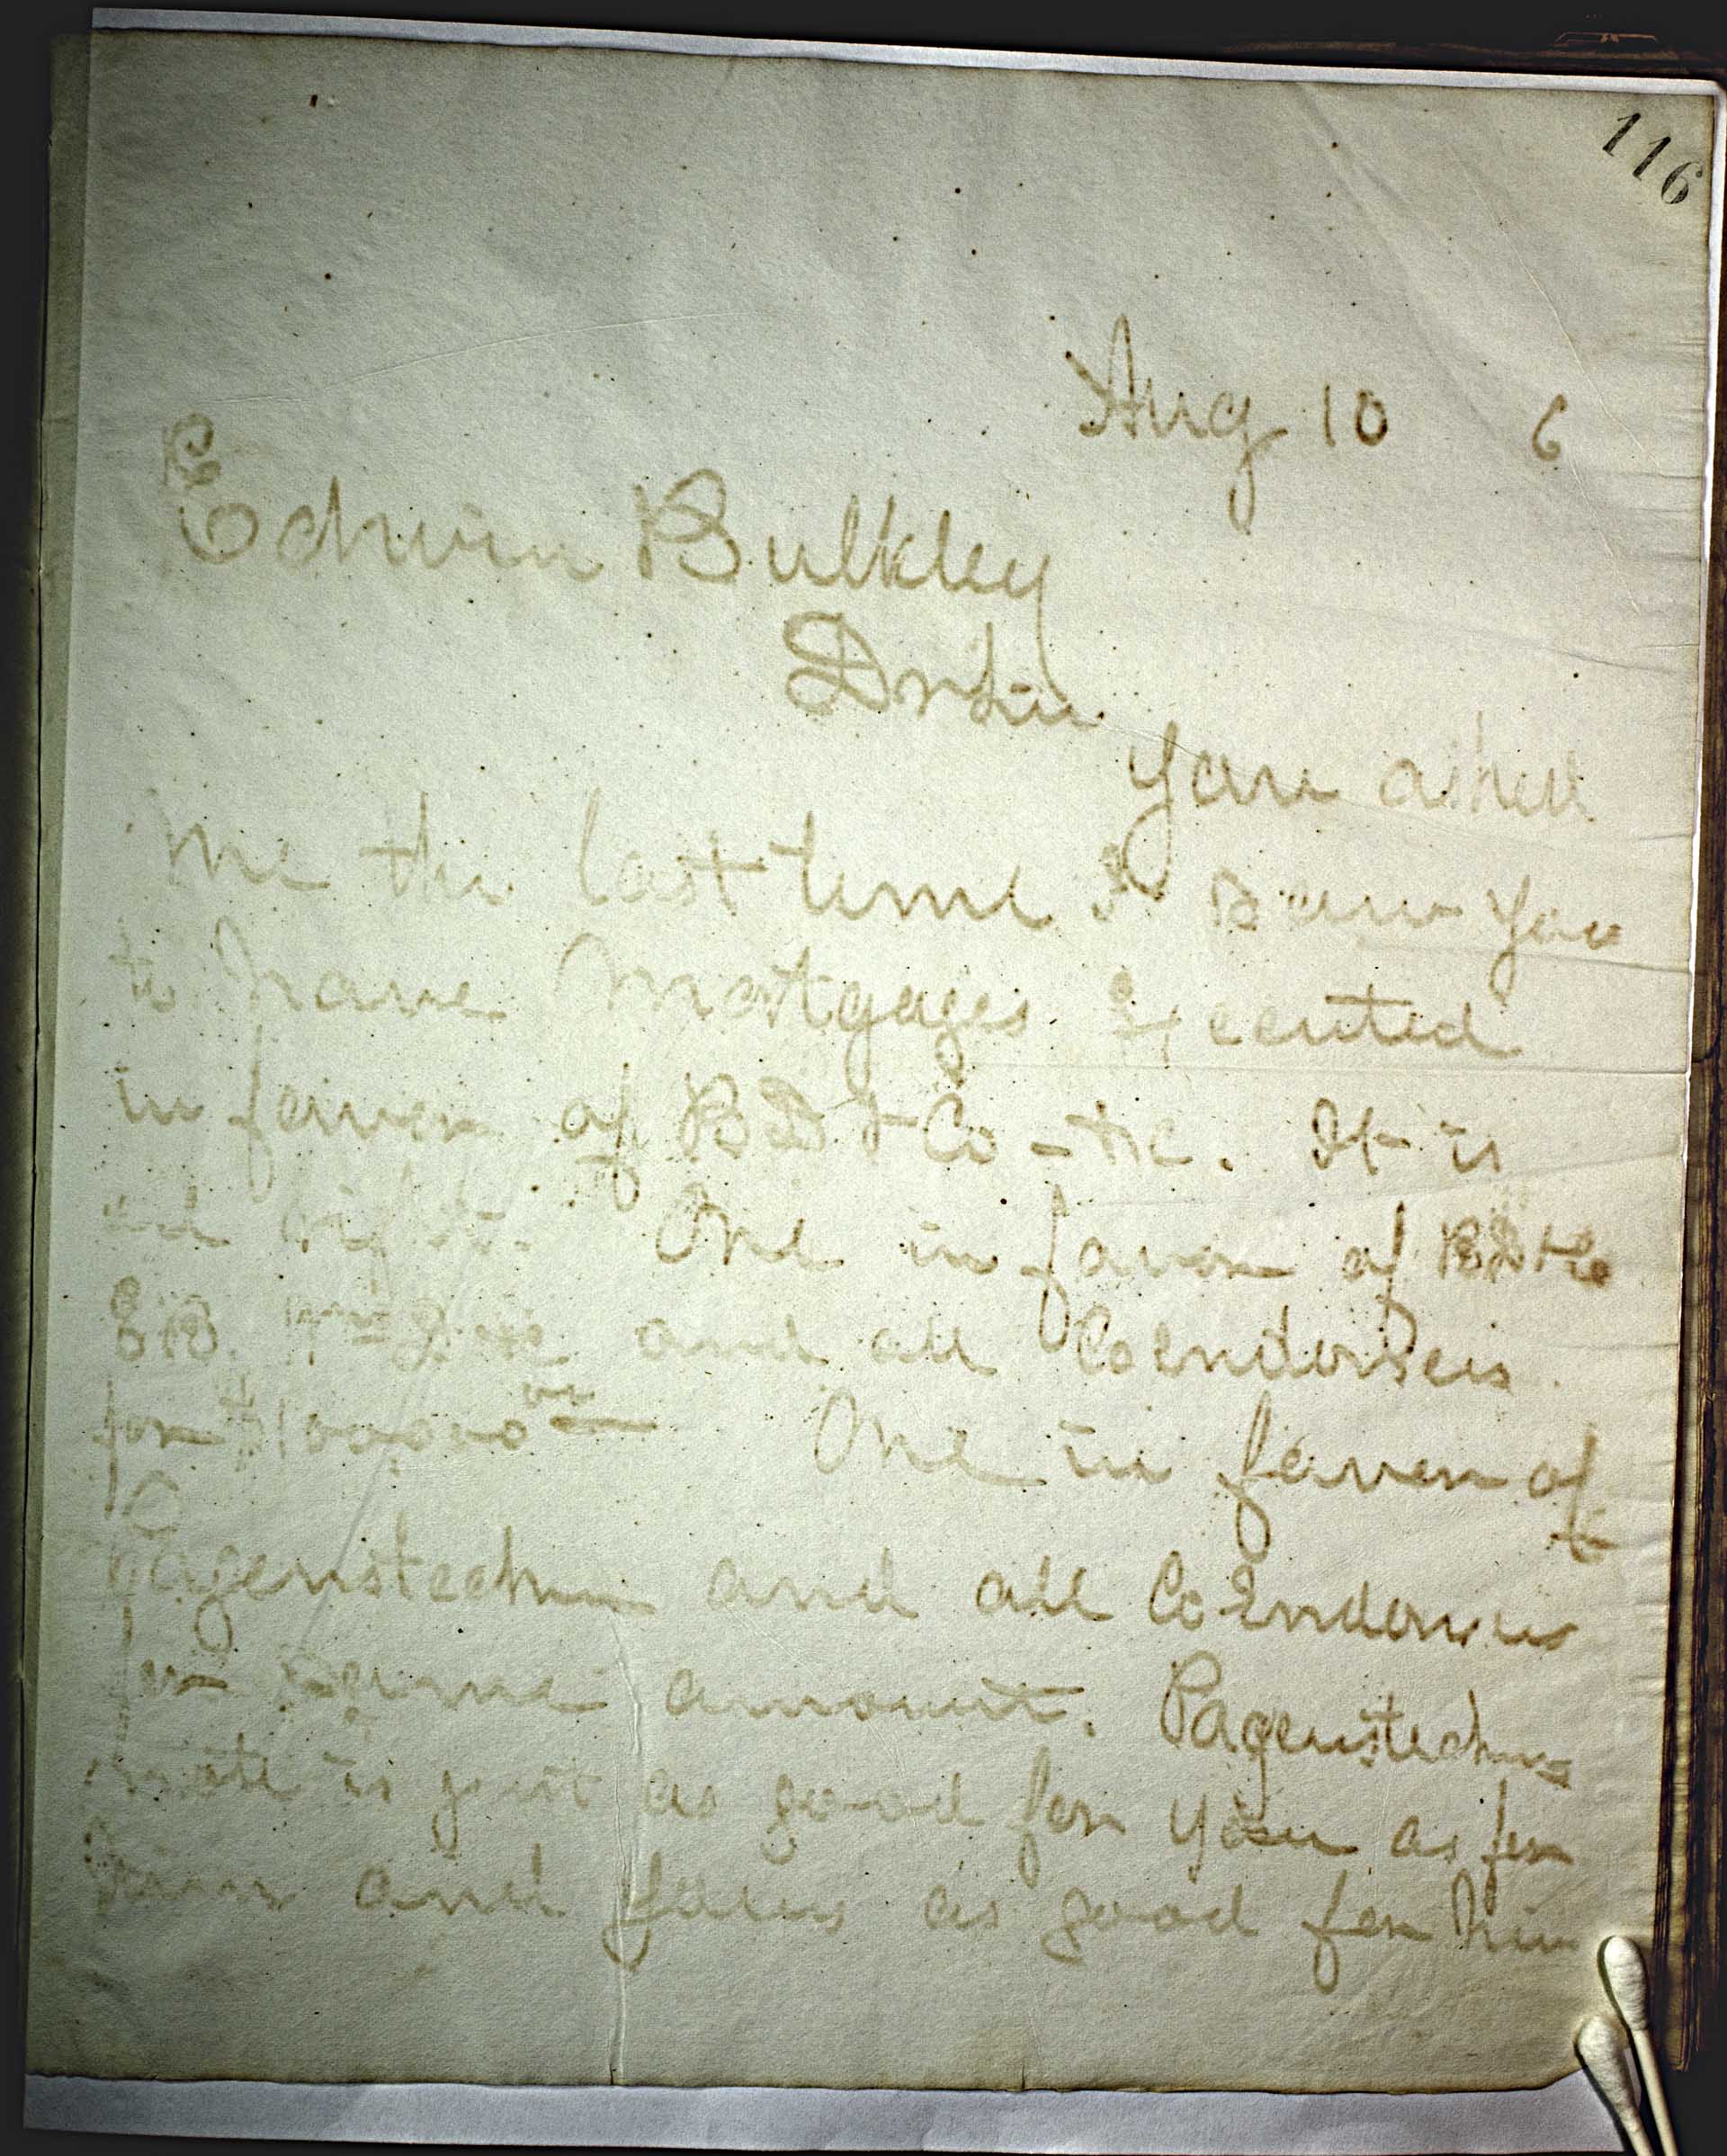 116
Aug 10 6
Edwin Bulkley
Dr Sir
You asked
me the last time I saw you
to have Mortgages Executed
in favor of BD & Co - &c. It is
all right. One in favor of BD & Co
EB. and all CoEndorsers
for $100,000 00
One in favor of
Pagenstecher and all CoEndorsers
for same amount. Pagenstechers
note is just as good for you as for
him and yours as good for him